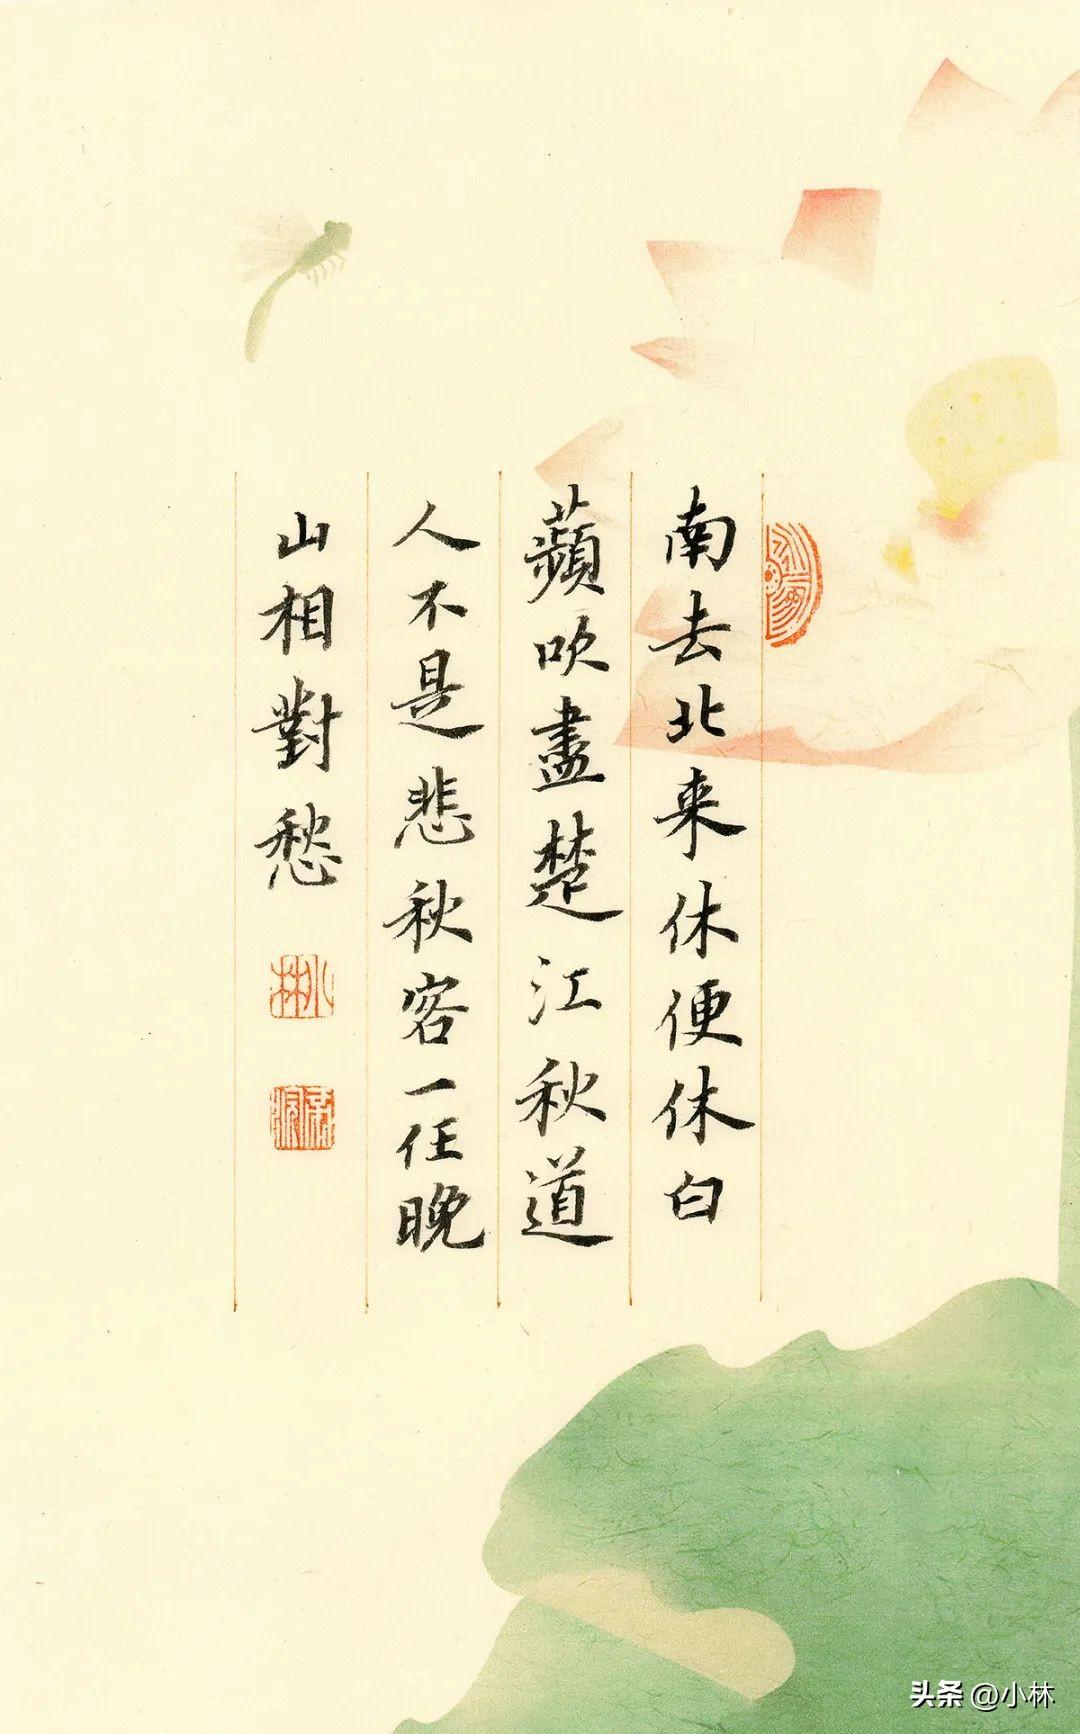 南去北来休便休白
蘋吹盡楚江秋道
人不是悲秋客一任晚
山相對愁
小林
头条 @小林